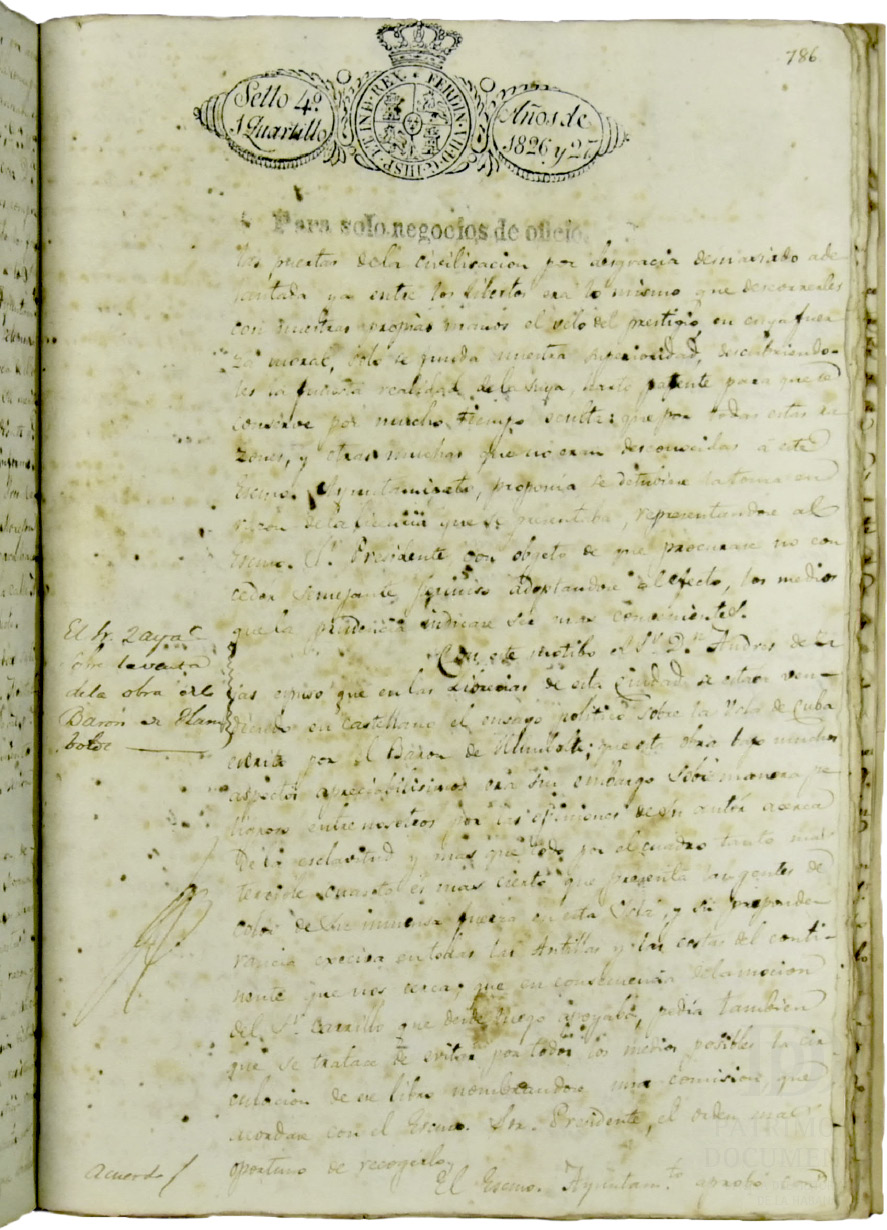 786
Sello 4º
1 Quartillo
HISP. ET IND. REX FERDIN. VII. D. G.
Años de
1826 y 27
Para solo negocios de oficio.
las puertas dela civilisacion por desgracia demasiado ade-
lantada ya entre los libertos era lo mismo que descorrerles
con nuestras propias manos el velo del prestigio, en cuya fuer
za moral, solo se funda nuestra superioridad, descubriendo-
les la funesta realidad dela suya, harto patente para que se
conserve por mucho tiempo oculta: que por todas estas ra
zones, y otras muchas que no eran desconocidas á este
Escmo. Ayuntamiento, proponia se detubiese la toma en
razon dela licencia que se presentaba, representandose al
Escmo. Sr. Presidente con objeto de que procurase no con
ceder semejante permiso adoptandose al efecto, los medios
que la prudencia indicase ser mas convenientes.
El Sr. Zayas
sobre la venta
dela obra del
Baron de Hum
bolde
Con este motibo el Sr. Dn. Andres de Za
yas espuso que en las Librerias de esta Ciudad se estaba ven-
diendo en castellano el ensayo politico sobre la Ysla de Cuba
escrita por el Baron de Humbolt; que esta obra bajo muchos
aspectos apreciabilisima era sin embargo sobre manera pe
ligrosa entre nosotros por las opiniones de su autor acerca
De la esclavitud y mas que todo por el cuadro tanto mas
terrible cuanto es mas cierto que presenta las gentes de
color de su inmensa fuerza en esta Ysla, y su preponde
rancia exesiva en todas las Antillas y las costas del conti-
nente que nos cerca; que en consecuencia dela mocion
del Sr. Carrillo que desde luego apoyaba, pedia tambien
que se tratase de evitar por todos los medios posibles la cir
culacion de ese libro nombrandose una comision que
acordase con el Escmo. Sor. Presidente, el orden mas
oportuno de recogerlo.
Acuerdo
El Escmo. Ayuntamto. aprobó con